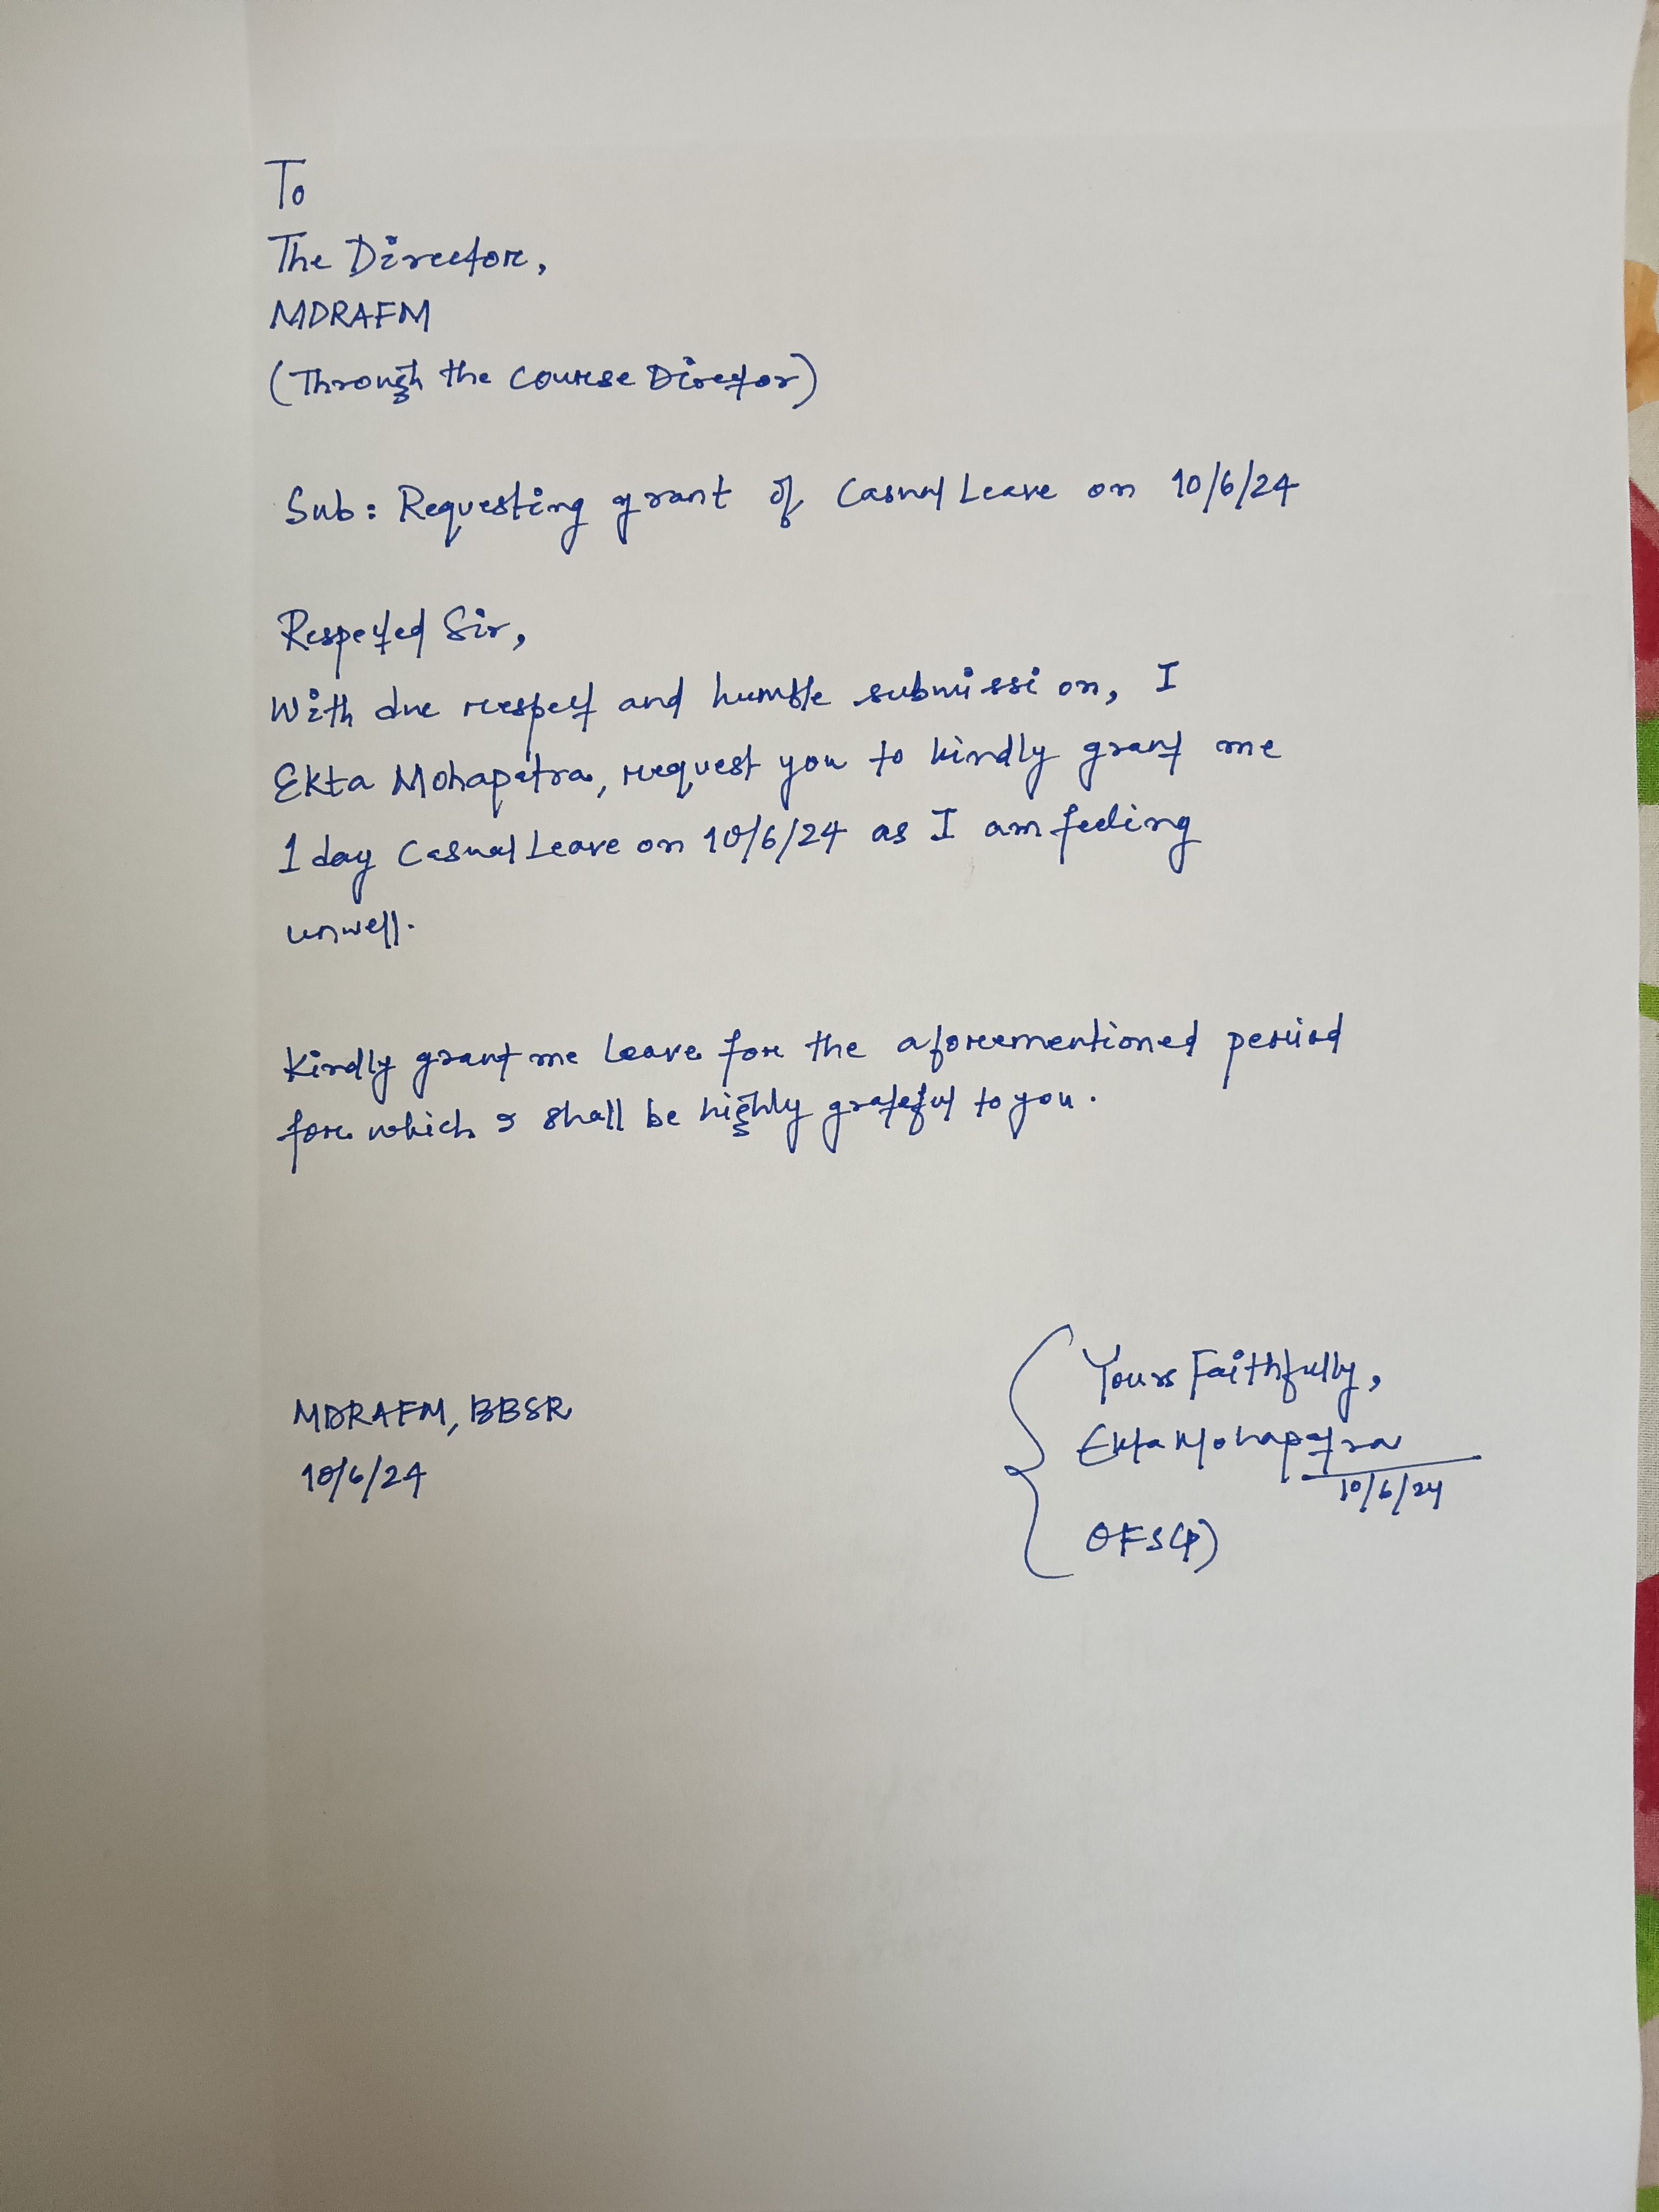 To
The Director,
MDRAFM
(Through the Course Director)
Sub: Requesting grant of Casual Leave on 10/6/24
Respected Sir,
With due respect and humble submission, I
Ekta Mohapatra, request you to kindly grant me
1 day Casual Leave on 10/6/24 as I am feeling
unwell.
Kindly grant me leave for the aforementioned period
for which I shall be highly grateful to you.
Yours Faithfully,
MDRAFM, BBSR
Ekta Mohapatra
10/6/24
10/6/24
OFS(P)